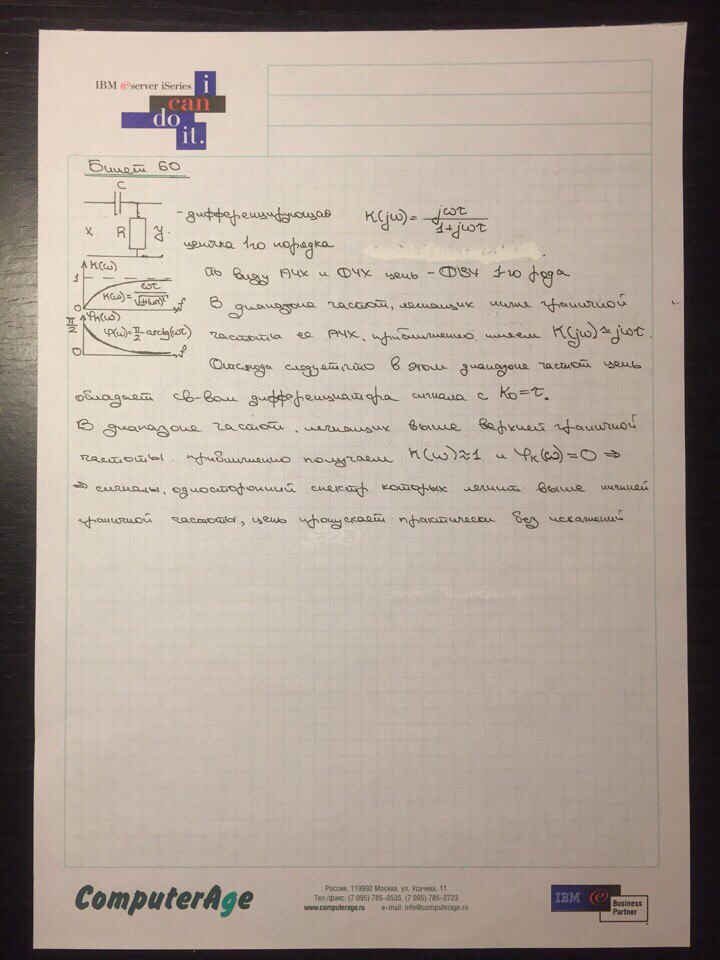 IBM @server iSeries
i
can
do
it.
Билет 60
C
x R y
- дифференцирующая K(jω) = jωτ / 1+jωτ
цепочка 1го порядка
K(ω)
1
K(ω)= ωτ / √1+(ωτ)²
0 f
По виду АЧХ и ФЧХ цепь - ФВЧ 1го рода
φK(ω)
π/2
φ(ω)=π/2-arctg(ωτ)
0 f
В диапазоне частот, лежащих ниже граничной
частоты ее АЧХ, приближенно имеем K(jω) ≈ jωτ.
Отсюда следует, что в этом диапазоне частот цепь
обладает св-вом дифференциатора сигнала с K₀=τ.
В диапазоне частот, лежащих выше верхней граничной
частоты приближенно получаем K(ω)≈1 и φK(ω)=0 ⇒
⇒ сигналы, односторонний спектр которых лежит выше нижней
граничной частоты, цепь пропускает практически без искажений
ComputerAge
Россия, 119992 Москва, ул. Усачева, 11
Тел./факс: (7 095) 785–0535, (7 095) 785–2723
www.computerage.ru e-mail: info@computerage.ru
IBM e Business
Partner